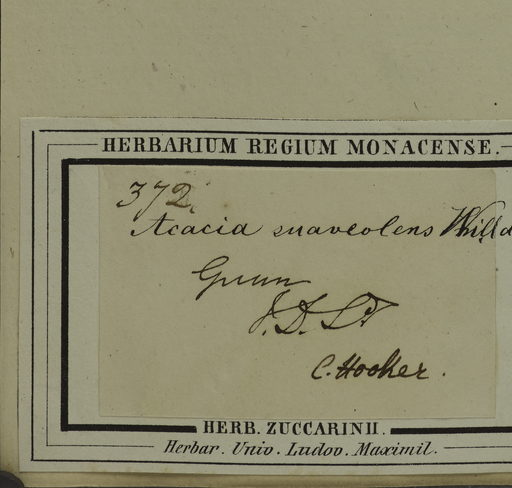 HERBARIUM REGIUM MONACENSE.
372.
Acacia suaveolens Willd
Gunn
V. D. L.
C. Hooker.
HERB. ZUCCARINII.
Herbar. Univ. Ludov. Maximil.